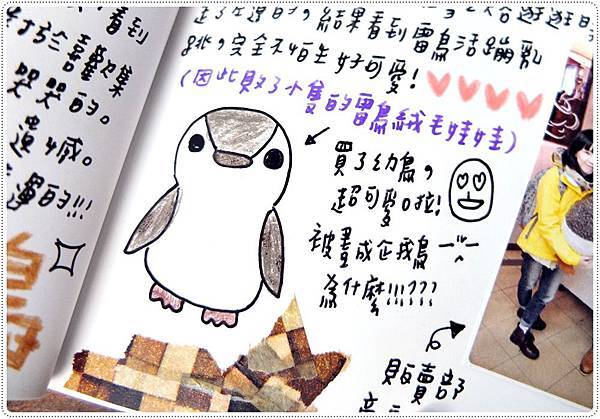 看到
喜歡集
哭哭的。
遺憾。
運的!!!
結果看到雷鳥活蹦亂
跳,完全不怕生好可愛!
(因此敗了小隻的雷鳥絨毛娃娃)
買了幼鳥,
超可愛啦!
被畫成企鵝
為什麼!!!???
販賣部